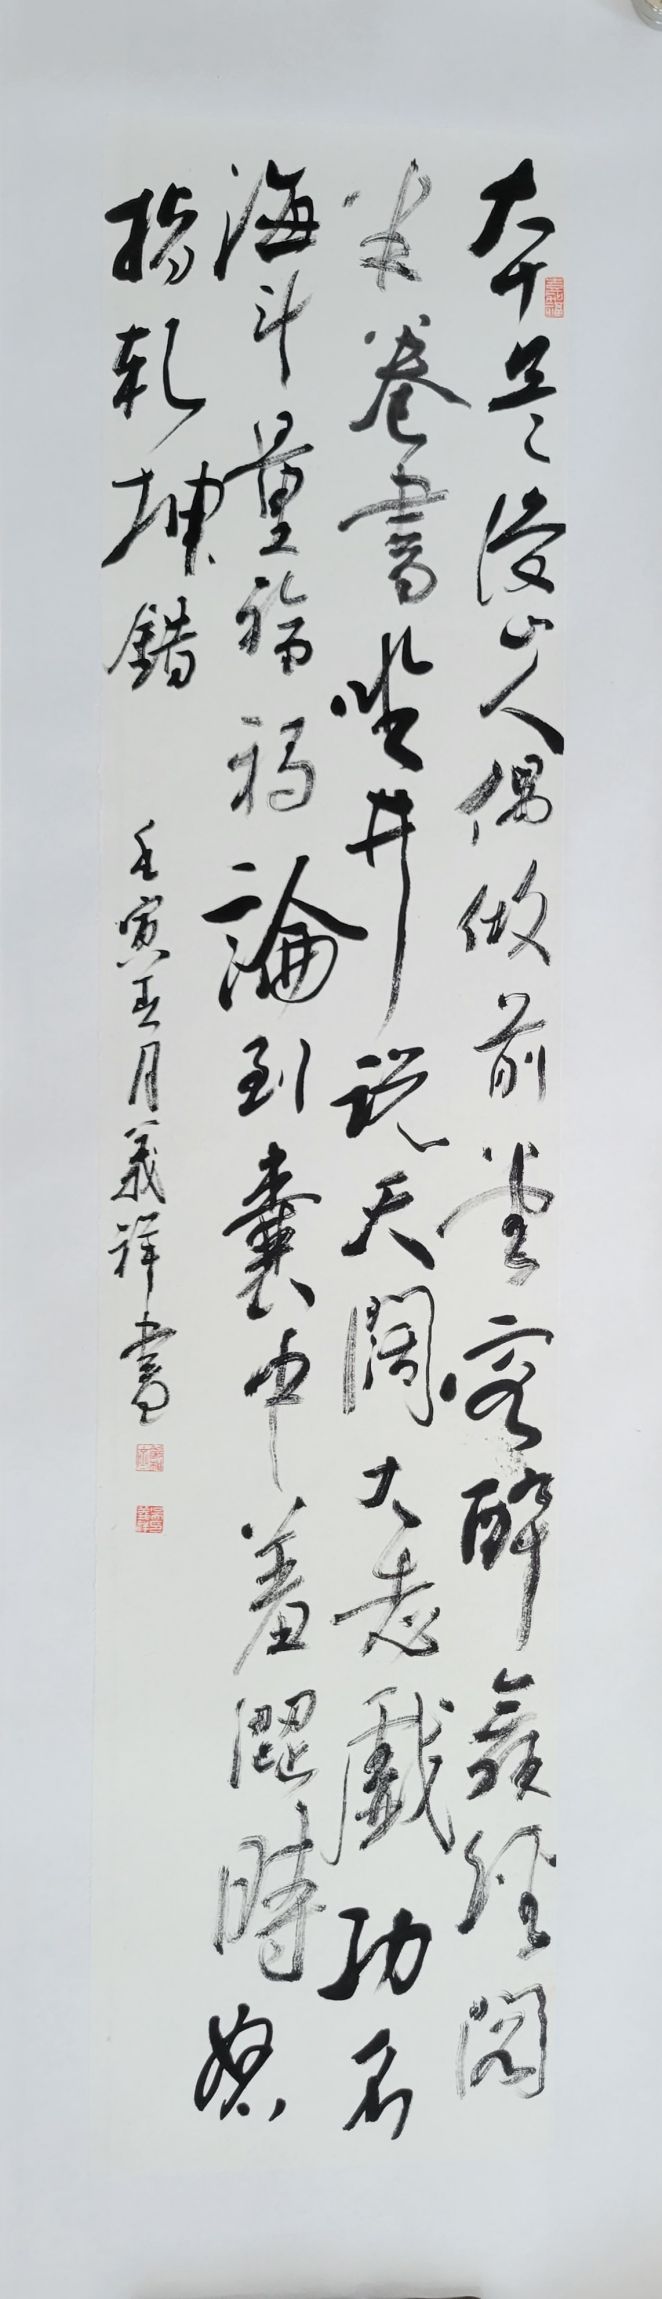 本是後山人偶做前堂客醉舞經閣
半卷書坐井説天闊大志戲功名
海斗量福禍論到囊中羞澀時怒
指乾坤錯
壬寅五月義祥書